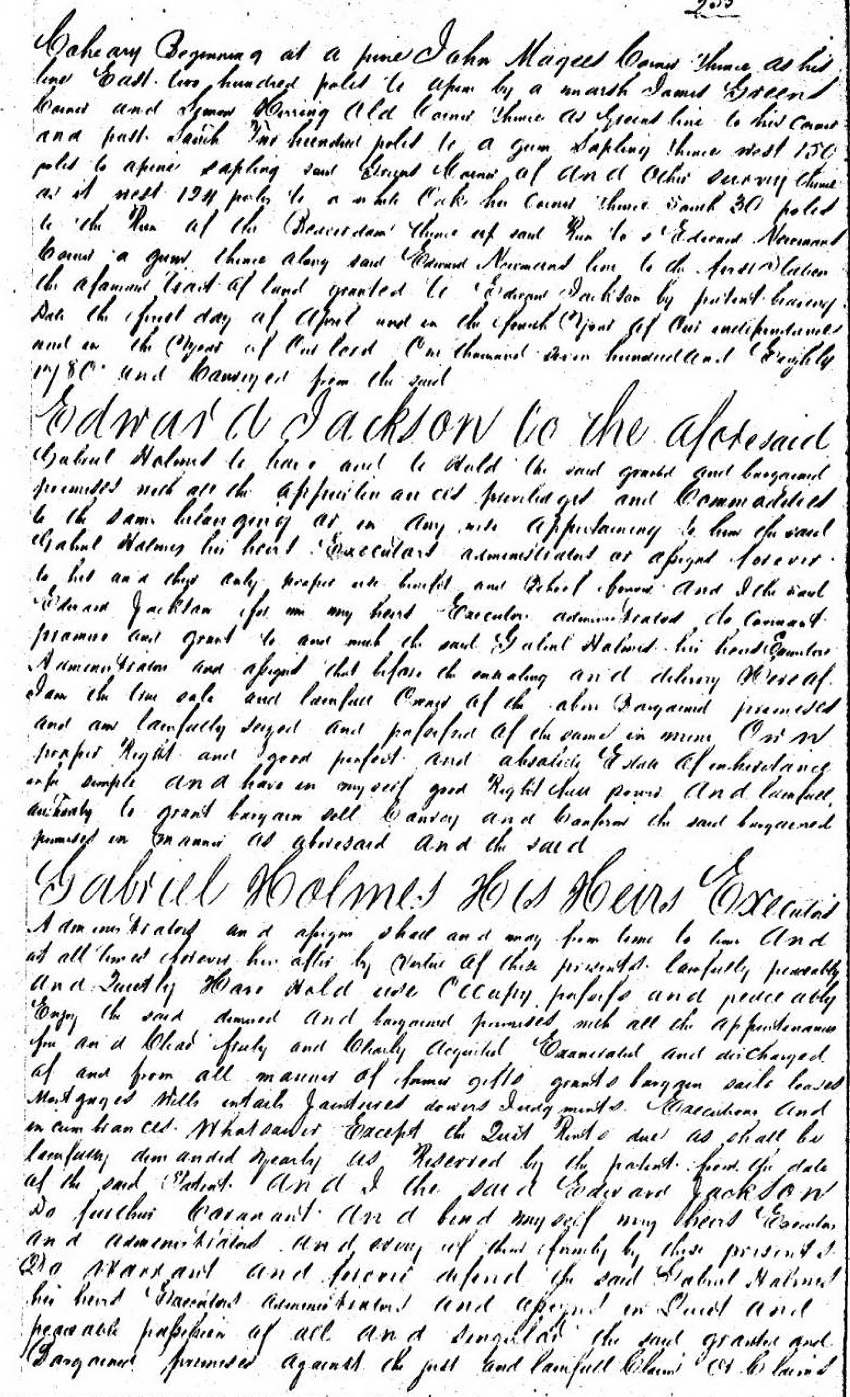 253
Coheary Beginning at a pine John Magees Corner thence as his
line East two hundred poles to apine by a marsh James Greens
Corner and Lymon Herring Old Corner thence as Greens line to his Corner
and past South Two hundred poles to a gum Sapling thence west 150
poles to apine sapling said Greens Corner of and Other survey thence
as it west 124 poles to a white Oak his Corner thence South 30 poles
to the Run of the Beaverdam thence up said Run to s Edward Newmans
Corner a gum thence along said Edward Newmans line to the first Station
the aforesaid tract of land granted to Edward Jackson by patent bearing
Date the first day of April and in the fourth Year of Our independence
and in the Year of Our lord One thousand seven hundred and Eighty
1780 and Conveyed from the said
Edward Jackson to the aforesaid
Gabriel Holmes to have and to Hold the said granted and bargained
premises with all the appurtinances priviledges and Commodities
to the same belonging or in any wise appertaining to him the said
Gabriel Holmes his heirs Executors administrators or assigns forever
to his and their only proper use benefit and behoof forever And I the said
Edward Jackson for me my heirs Executors administrators do Covenant
promise and grant to and with the said Gabriel Holmes his heirs Executors
Administrators and assigns that before the ensealing and delivery Hereof
I am the true sole and lawfull Owner of the above Bargained premises
and am lawfully seized and possessed of the same in mine Own
proper Right and good perfect and absolute Estate of inheritance
in fee simple and have in myself good Right full power And lawfull
authority to grant bargain sell Convey and Confirm the said bargained
premises in manner as aforesaid And the said
Gabriel Holmes His Heirs Executors
Administrators and assigns shall and may from time to time And
at all times forever here after by Vertue of these presents lawfully peaceably
and Quietly Have Hold use Occupy possess and peaceably
Enjoy the said demised and bargained premises with all the appurtenances
free and Clear freely and Clearly acquited Exonerated and discharged
of and from all manner of former gifts grants bargain sails leases
Mortgages Wills entails Jointures dowers Judgments Executions and
incumbrances Whatsoever Except the Quit Rents due as shall be
lawfully demanded yearly as Reserved by the patent from the date
of the said Patent And I the said Edward Jackson
Do further Covenant And bind myself my heirs Executors
and administrators and every of them firmly by these presents
To Warrant and forever defend the said Gabriel Holmes
his heirs Executors administrators and assigns in Quiet and
peaceable possession of all and singular the said granted and
Bargained premises against the just and lawfull Claim or Claims